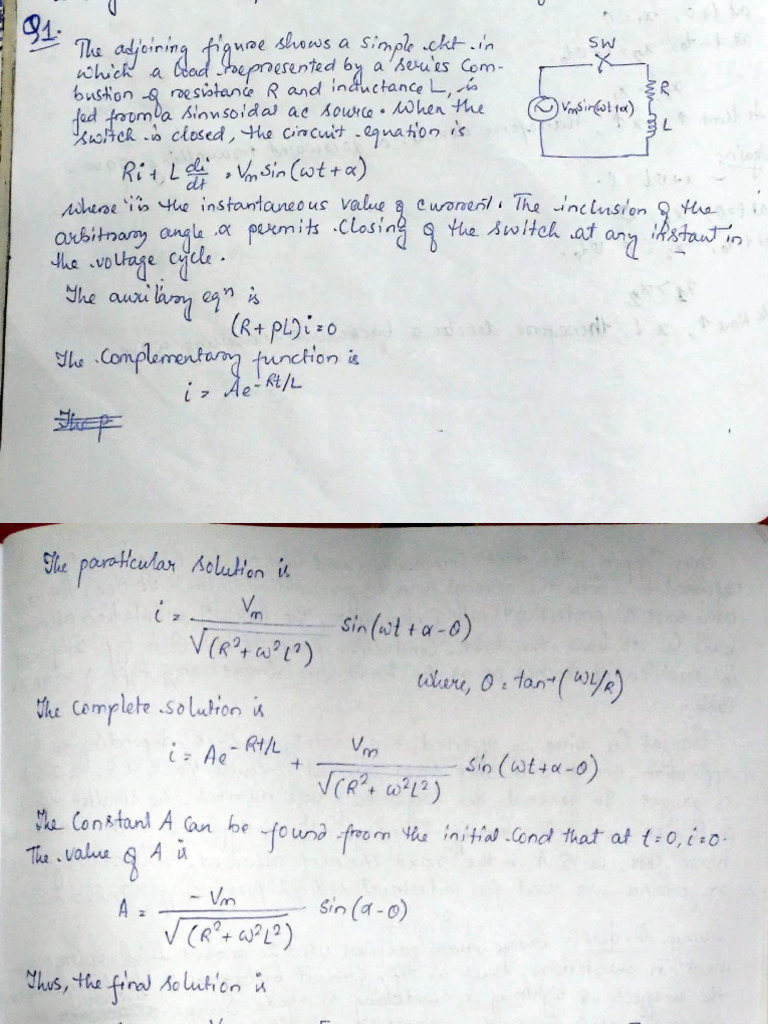 Q1.
The adjoining figure shows a simple ckt. in
which a load represented by a series Com-
bustion of resistance R and inductance L, is
fed from a sinusoidal ac source. When the
switch is closed, the circuit equation is
SW
Vm sin(ωt+α)
R
L
Ri + L di/dt = Vm sin(ωt+α)
where 'i' is the instantaneous value of current. The inclusion of the
arbitrary angle α permits closing of the switch at any instant in
the voltage cycle.
The auxilary eqn is
(R + pL)i = 0
The Complementary function is
i = Ae^-Rt/L
The particular solution is
i = Vm/√(R²+ω²L²) sin(ωt+α-θ)
where, θ = tan⁻¹(ωL/R)
The complete solution is
i = Ae^-Rt/L + Vm/√(R²+ω²L²) sin(ωt+α-θ)
The Constant A can be found from the initial Cond that at t=0, i=0.
The value of A is
A = -Vm/√(R²+ω²L²) sin(α-θ)
Thus, the final solution is